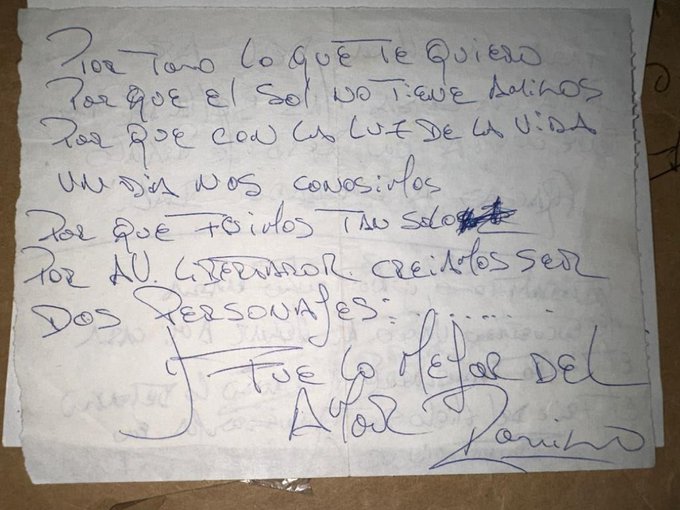 Por Todo lo que te quiero
Por que el sol no tiene
Por que con la luz de la vida
un dia nos conosimos
Por que fuimos tan solo
Por Av. Libertador. creiamos ser
dos personajes: .......
Y fue lo mejor del
Amor